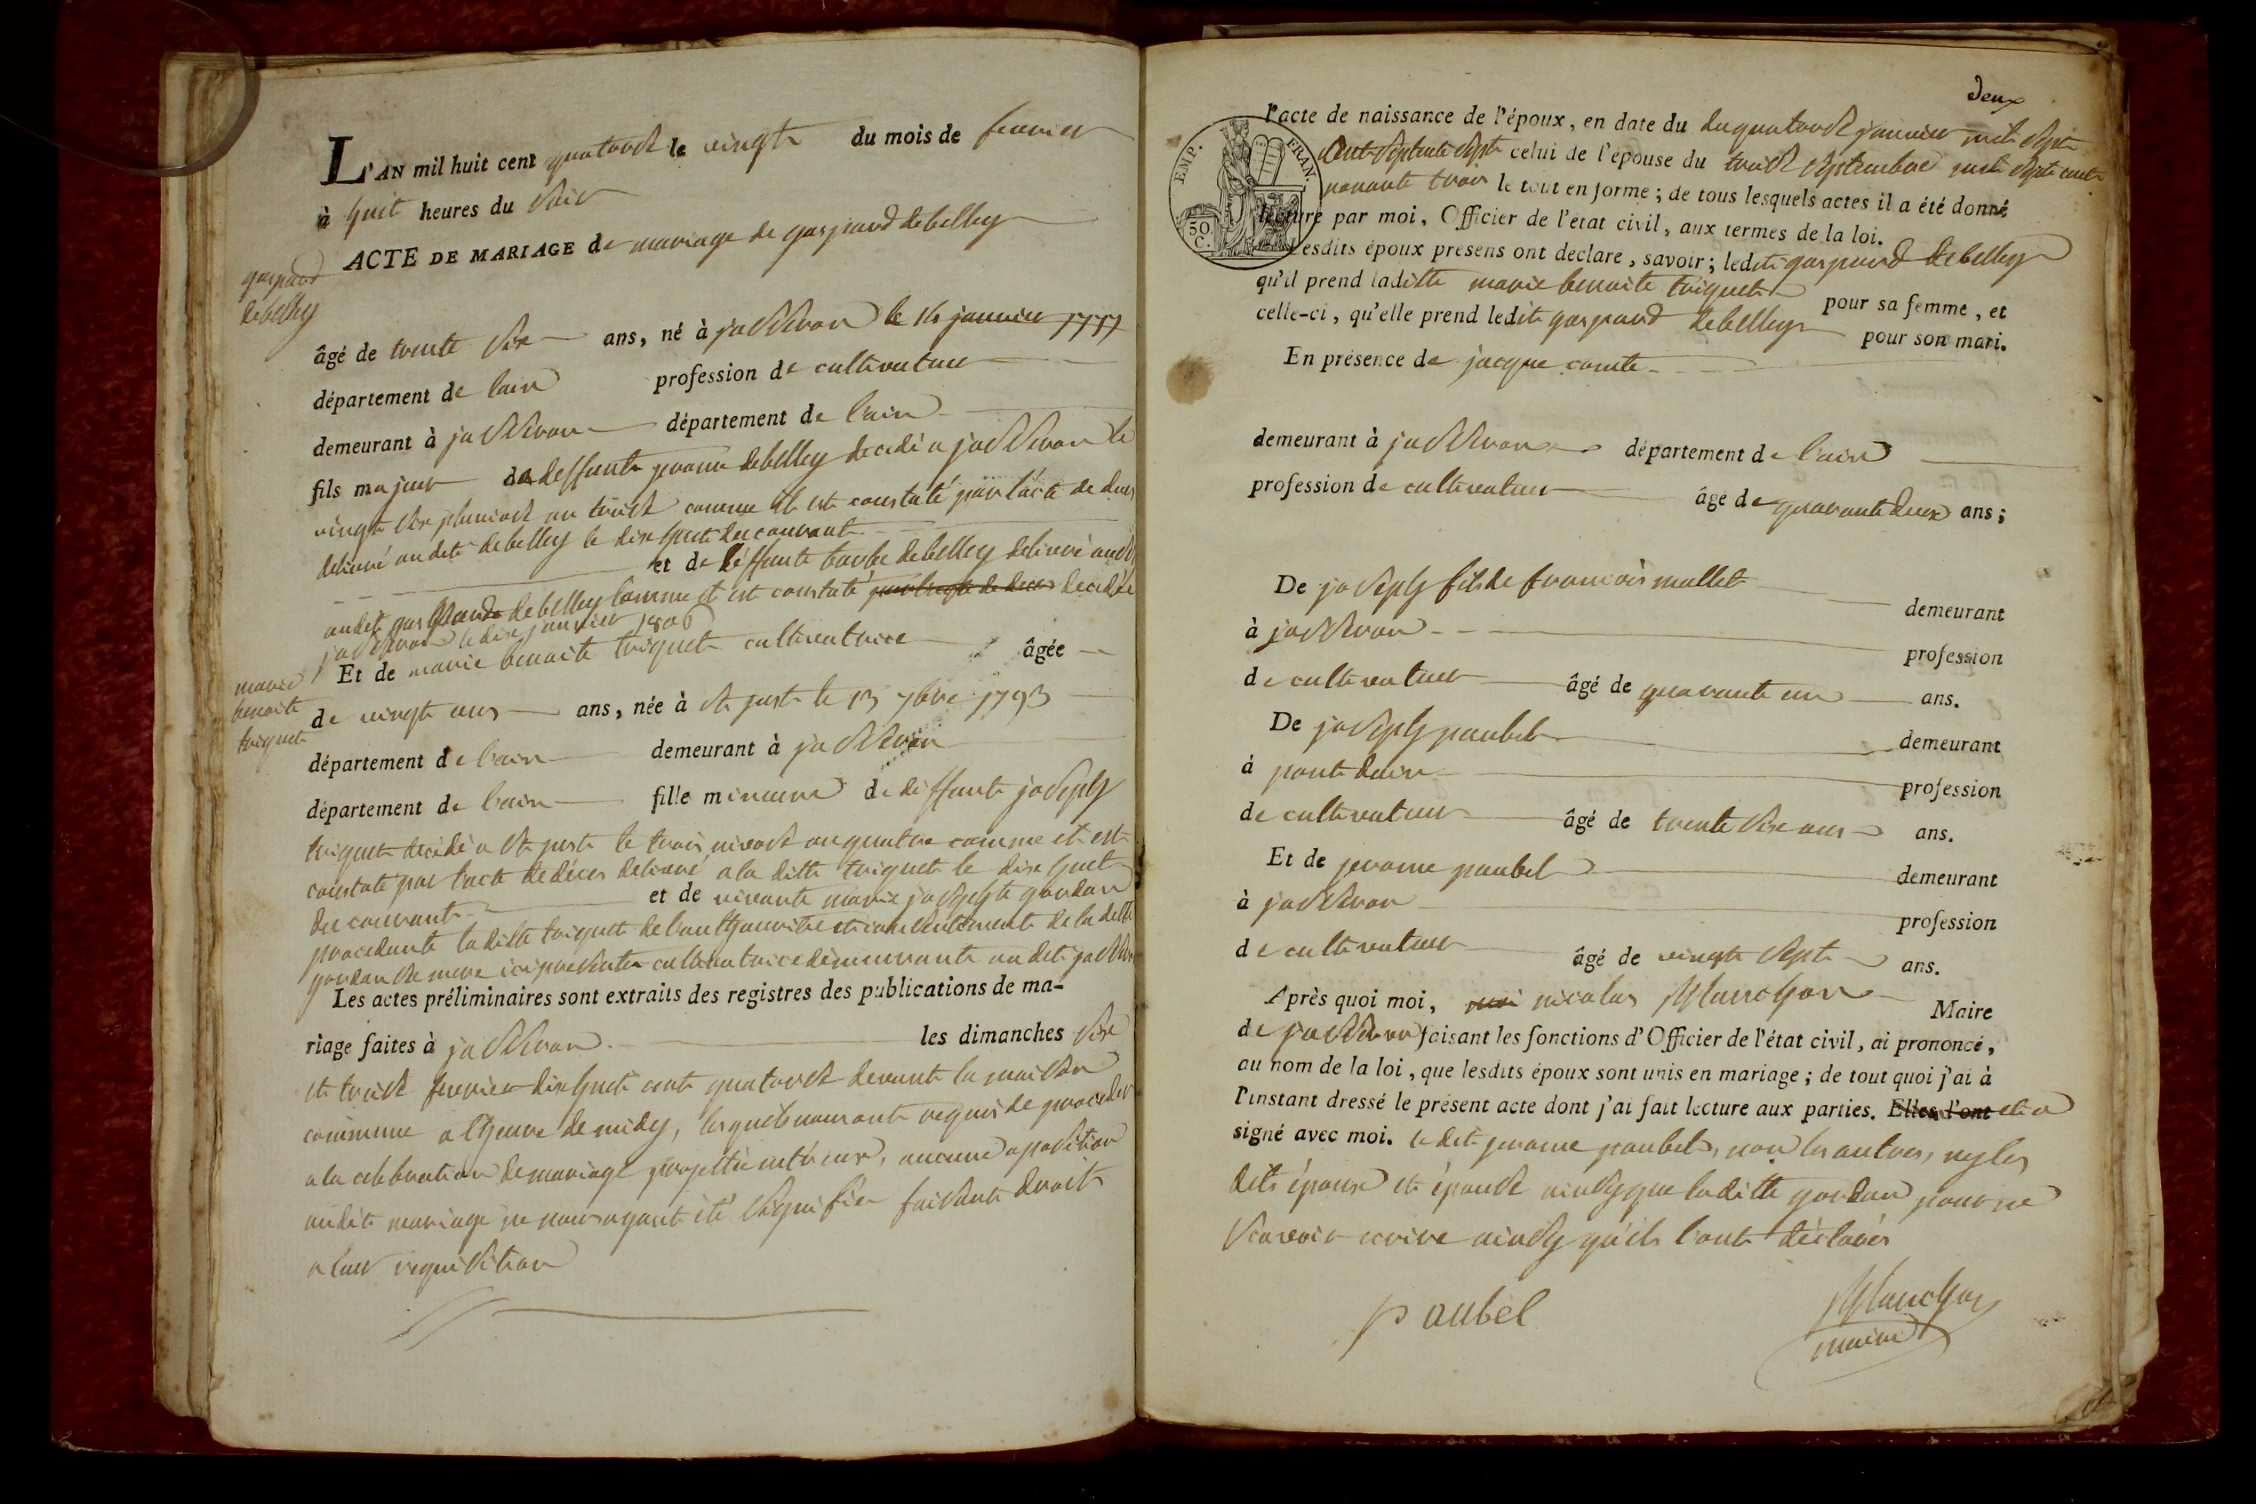 L'AN mil huit cent quatorse le vingt du mois de fevrier
à huit heures du soir
ACTE DE MARIAGE de mariage de gaspard debelley
gaspard
debelley
âgé de trente six ans, né à jasseron le 14 janvier 1777
département de lain profession de cultivateur
demeurant à jasseron département de lain
fils majeur de deffunt jerome debelley decedé a jasseron le
vingt six pluviose an treise comme il est constaté par l'acte de deces
delivré au dit debelley le dix huit du courant
et de deffunte barbe debelley delivré audit
audit gaspard debelley comme il est constaté par l'acte de deces decedée
jasseron le dix janvier 1806
Et de marie benoite triquet cultivatrice âgée
marie
benoite
triquet
de vingt ans ans, née à st just le 13 7bre 1793
département de lain demeurant à jasseron
département de lain fille mineure de deffunt joseph
triquet decedé a st just le trois nivose an quatre comme il est
constaté par l'acte de déces delivré a la ditte triquet le dix huit
du courant et de vivante marie josephte gordan
procedante la ditte triquet de l'authorité et consentement de la ditte
gordan sa mere ici presente cultivatrice demeurante au dit jasseron
Les actes préliminaires sont extraits des registres des publications de ma-
riage faites à jasseron les dimanches six
et treise fevrier dix huit cent quatorse devant la maison
commune a l'heure de midy, lesquels nous ont requis de proceder
a la celebration de mariage projetté entr'eux, aucune oposition
audit mariage ne nous ayant été signifiée faisant droit
a leur requisition
deux
l'acte de naissance de l'époux, en date du du quatorse janvier mil sept
cent septente sept celui de l'épouse du treise septembre mil sept cent
nonante trois le tout en forme; de tous lesquels actes il a été donné
lecture par moi, Officier de l'état civil, aux termes de la loi.
EMP. FRAN.
50.
C.
Lesdits époux présens ont declare, savoir; ledit gaspard debelley
qu'il prend laditte marie benoite triquet pour sa femme, et
celle-ci, qu'elle prend ledit gaspard debelley pour son mari.
En présence de jacque comte
demeurant à jasseron département de lain
profession de cultivateur âgé de quarante deux ans;
De joseph fils de francois mallet demeurant
à jasseron profession
de cultivateur âgé de quarante un ans.
De joseph paubel demeurant
à pont dain profession
de cultivateur âgé de trente six ans ans.
Et de jerome paubel demeurant
à jasseron profession
de cultivateur âgé de vingt sept ans.
Après quoi moi, moi nicolas planchon Maire
de jasseron faisant les fonctions d'Officier de l'état civil, ai prononcé,
au nom de la loi, que lesdits époux sont unis en mariage; de tout quoi j'ai à
l'instant dressé le présent acte dont j'ai fait lecture aux parties. Elles l'ont et a
signé avec moi. le dit jerome paubel, non les autres, ny les
dits époux et épouse ainsy que laditte gordan pour ne
scavoir ecrire ainsy qu'ils l'ont déclarés
paubel
planchon
maire